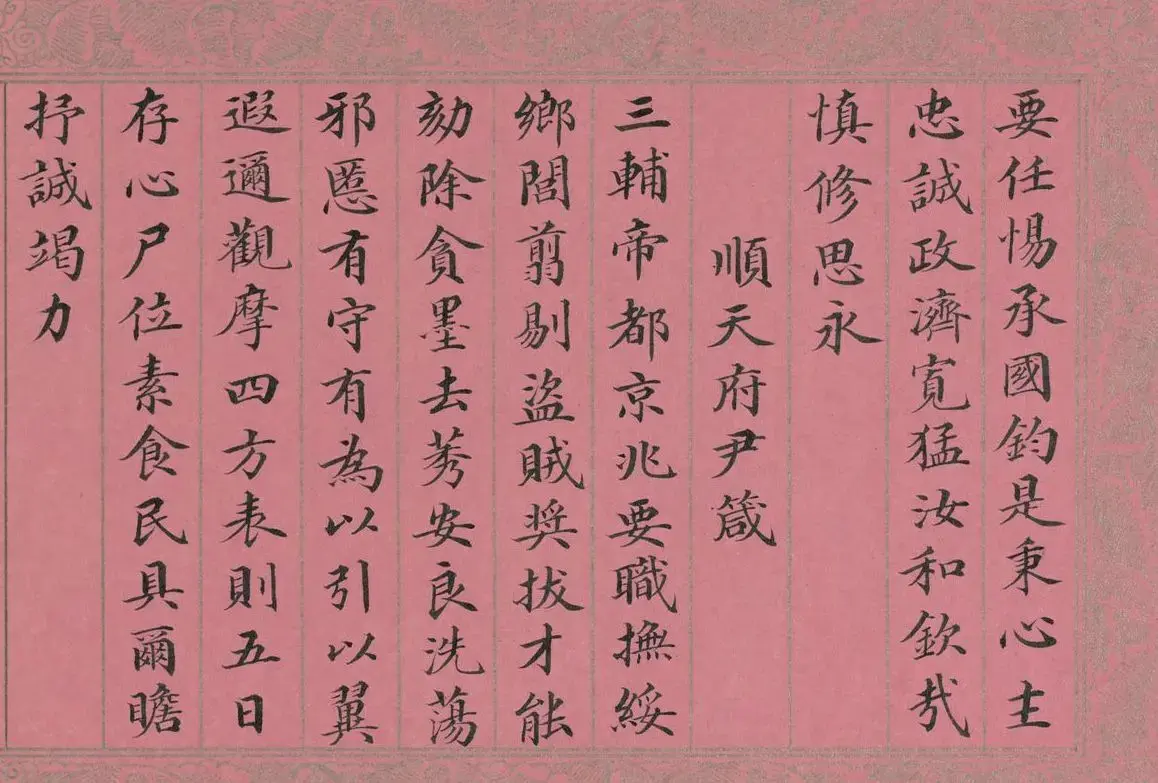 要任惕承國鈞是秉心主
忠誠政濟寬猛汝和欽哉
慎修思永
順天府尹箴
三輔帝都京兆要職撫綏
鄉閭翦剔盜賊奬拔才能
劾除貪墨去莠安良洗蕩
邪慝有守有為以引以翼
遐邇觀摩四方表則五日
存心尸位素食民具爾瞻
抒誠竭力